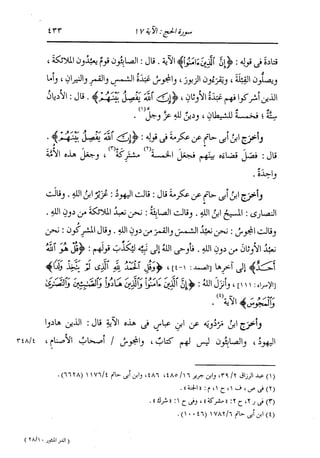 سورة الحج: الآية ١٧
٤٣٣
قتادة فى قوله: ﴿إن الذين ءامنوا﴾ الآية. قال: الصابئون قوم يعبدون الملائكة،
ويصلون القبلة، ويقرءون الزبور، والمجوس عبدة الشمس والقمر والنيران، وأما
الذين أشركوا فهم عبدة الأوثان، ﴿إن الله يفصل بينهم﴾. قال: الأديان
ستة؛ فخمسة للشيطان، ودين لله عز وجل(١).
وأخرج ابن أبى حاتم عن عكرمة فى قوله: ﴿إن الله يفصل بينهم﴾.
قال: فصل قضاءه بينهم فجعل الخمسة(٢) مشتركة(٣)، وجعل هذه الأمة
واحدة.
وأخرج ابن أبى حاتم عن عكرمة قال: قالت اليهود: عزير ابن الله. وقالت
النصارى: المسيح ابن الله. وقالت الصابئة: نحن نعبد الملائكة من دون الله.
وقالت المجوس: نحن نعبد الشمس والقمر من دون الله. وقال المشركون: نحن
نعبد الأوثان من دون الله. فأوحى الله إلى نبيه ليكذب قولهم: ﴿قل هو الله
أحد﴾ إلى آخرها [الصمد: ١-٤]، ﴿وقل الحمد لله الذى لم يتخذ ولدا﴾
[الإسراء: ١١١]، وأنزل الله: ﴿إن الذين ءامنوا والذين هادوا والصابئين والنصارى
والمجوس﴾ الآية(٤).
وأخرج ابن مردويه عن ابن عباس فى هذه الآية قال: الذين هادوا
اليهود، والصابئون ليس لهم كتاب، والمجوس / أصحاب الأصنام،
٣٤٨/٤
(١) عبد الرزاق ٣٩/٢، وابن جرير ٤٨٥/١٦، ٤٨٦، وابن أبى حاتم ١١٧٦/٤ (٦٦٢٨).
(٢) فى ص، ف ١، ح ١، م: «الجنة».
(٣) فى ر ٢، ح ٢: «مشركة»، وفى ح ١: «شركة».
(٤) ابن أبى حاتم ١٧٨٢/٦ (١٠٠٤٦).
(الدر المنثور ٢٨/١٠)